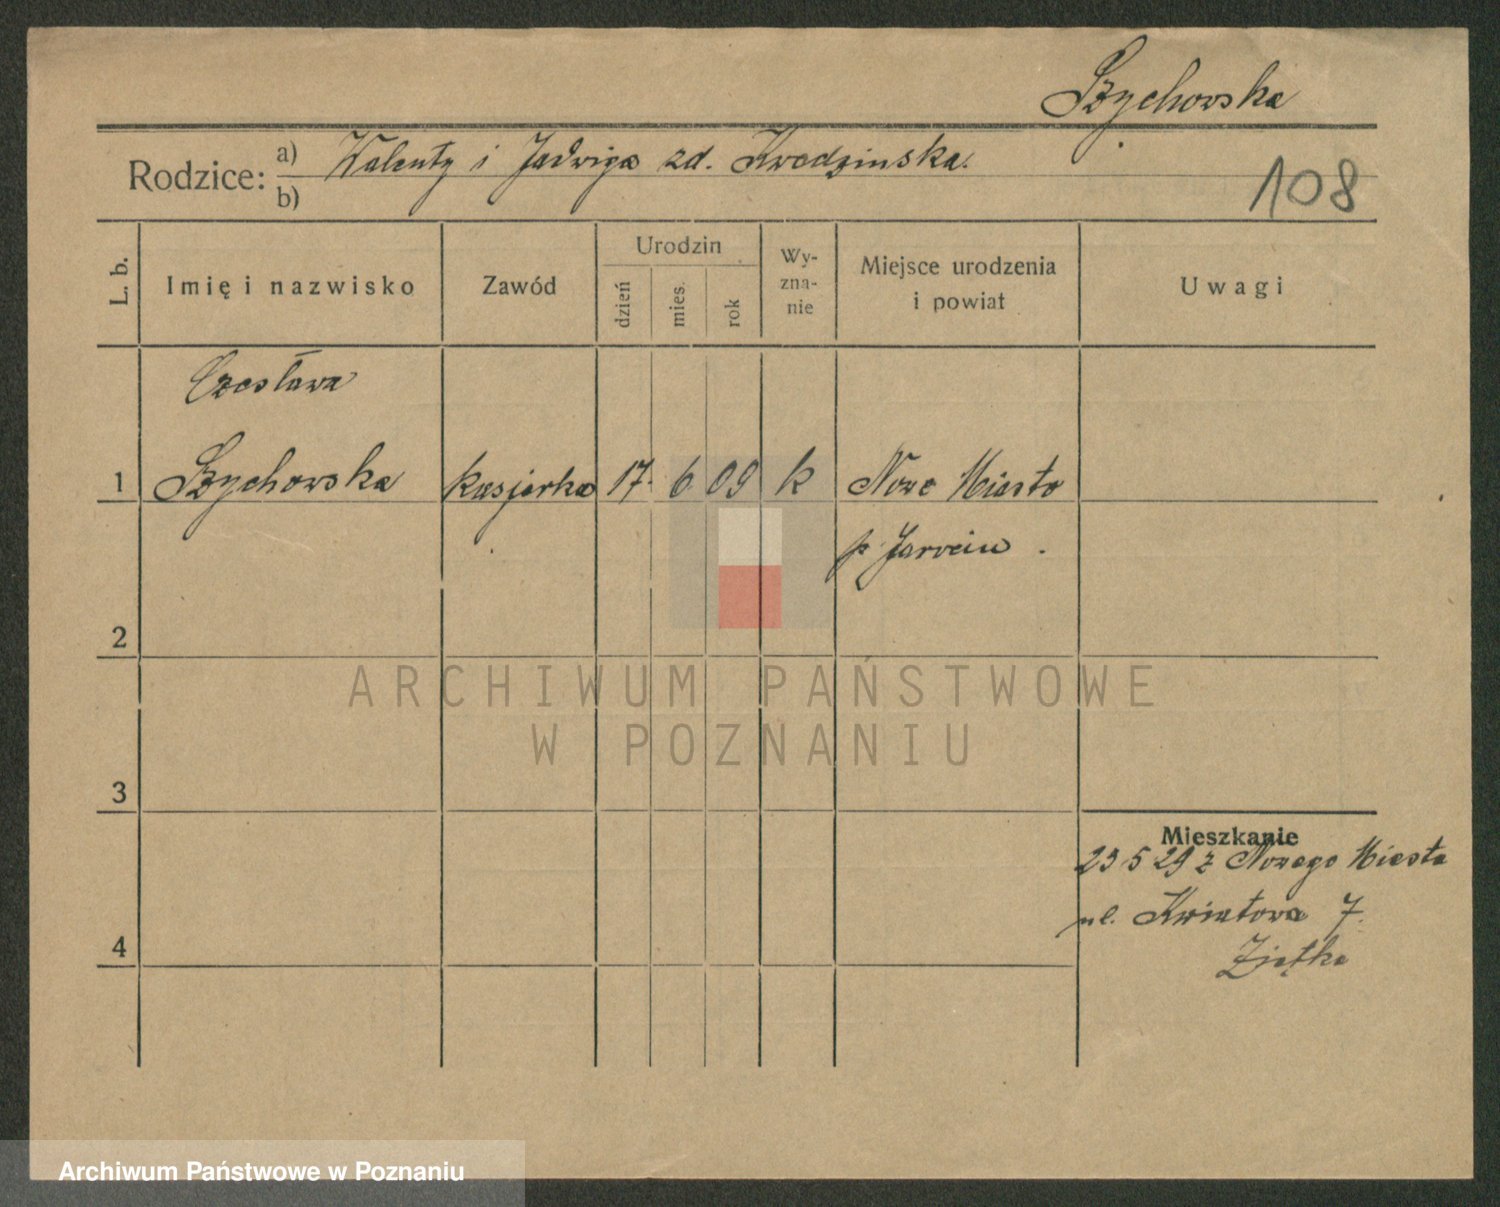 Szychowska
Rodzice: a) Walenty i Jadwiga zd. Kwodzinska.
b)
108
L. b.
Imię i nazwisko
Zawód
Urodzin
dzień
mies.
rok
Wy-
zna-
nie
Miejsce urodzenia
i powiat
Uwagi
Czesława
1 Szychowska kasjerka 17. 6 09 k Nowe Miasto
p Jarocin.
2
3
4
Mieszkanie
23 5 29 z Nowego Miasta
ul. Kwiatowa 7.
Ziętke
ARCHIWUM PAŃSTWOWE
W POZNANIU
Archiwum Państwowe w Poznaniu